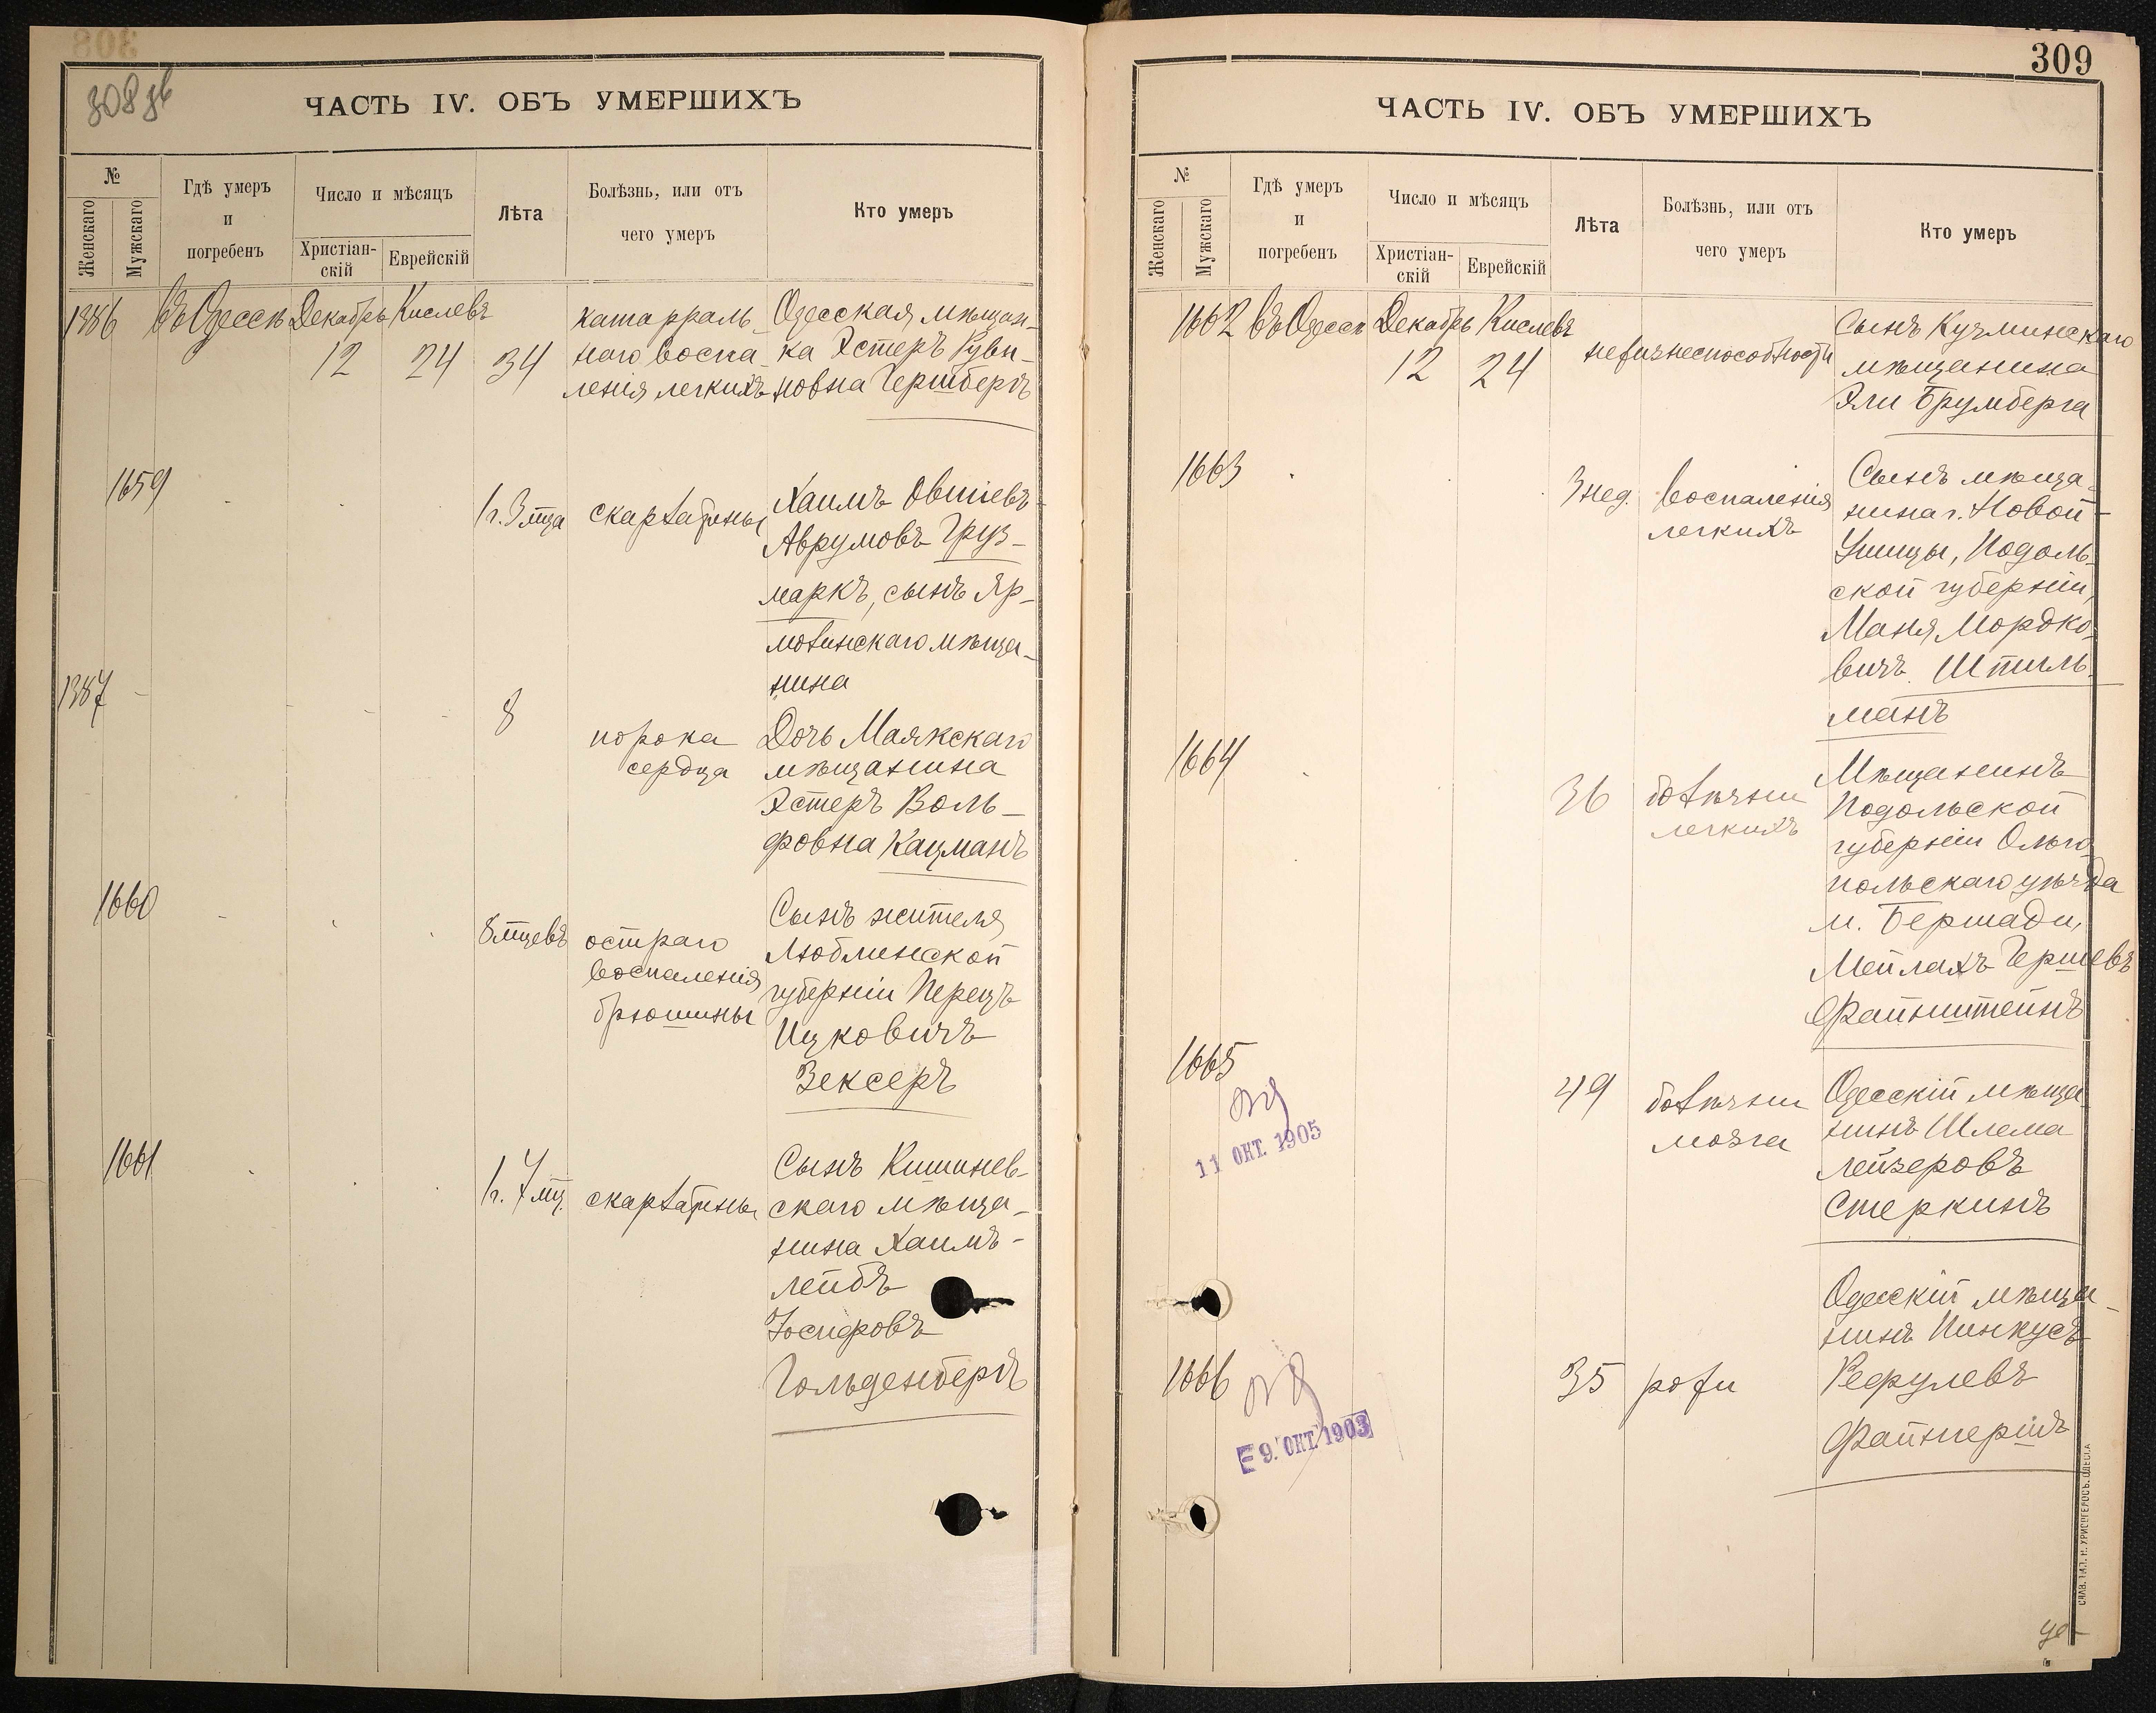 308 зв
ЧАСТЬ IV. ОБЪ УМЕРШИХЪ
№
Женскаго
Мужскаго
Гдѣ умеръ
и
погребенъ
Число и мѣсяцъ
Христіан-
скій
Еврейскій
Лѣта
Болѣзнь, или отъ
чего умеръ
Кто умеръ
1386 въ Одессѣ Декабрь Кислевъ
12 24 34
катарраль-
наго воспа-
ленія легкихъ
Одесская мѣщан-
ка Эстеръ Руви-
новна Гершбергъ
1659
1г. 3 мца скарлатины
Хаимъ Овшіевъ-
Аврумовъ Груз-
маркъ, сынъ Яр-
молинскаго мѣща-
нина
1387
8
порока
сердца
Дочь Маякскаго
мѣщанина
Эстеръ Воль-
фовна Кацманъ
1660
8 мцевъ
остраго
воспаленія
брюшины
Сынъ жителя
Люблинской
губерніи Перецъ
Ицковичъ
Зексеръ
1661
1г. 7 мц. скарлатины
Сынъ Кишинев-
скаго мѣща-
нина Хаимъ-
Лейбъ
Іосифовъ
Гольденбергъ
309
ЧАСТЬ IV. ОБЪ УМЕРШИХЪ
№
Женскаго
Мужскаго
Гдѣ умеръ
и
погребенъ
Число и мѣсяцъ
Христіан-
скій
Еврейскій
Лѣта
Болѣзнь, или отъ
чего умеръ
Кто умеръ
1662 въ Одессѣ Декабрь Кислевъ
12 24
нежизнеспособности
Сынъ Кузминскаго
мѣщанина
Эли Брумберга
1663
3 нед.
воспаленія
легкихъ
Сынъ мѣща-
нина г. Новой-
Ушицы, Подоль-
ской губерніи,
Маня Мордко-
вичъ Штиль-
манъ
1664
36
болѣзни
легкихъ
Мѣщанинъ
Подольской
губерніи Ольго-
польскаго уѣзда
м. Бершади,
Мейлахъ Гершевъ
Файнштейнъ
1665
11 ОКТ. 1905
49
болѣзни
мозга
Одесскій мѣща-
нинъ Шлема
Лейзеровъ
Стеркинъ
1666
9. ОКТ 1903
35 рожи
Одесскій мѣща-
нинъ Пинкусъ
Рефулевъ
Файнгершъ